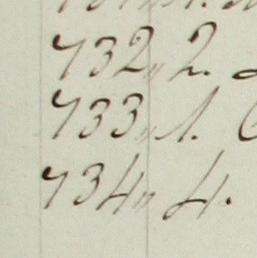 732 „ 2.
733 „ 1.
734 „ 4.